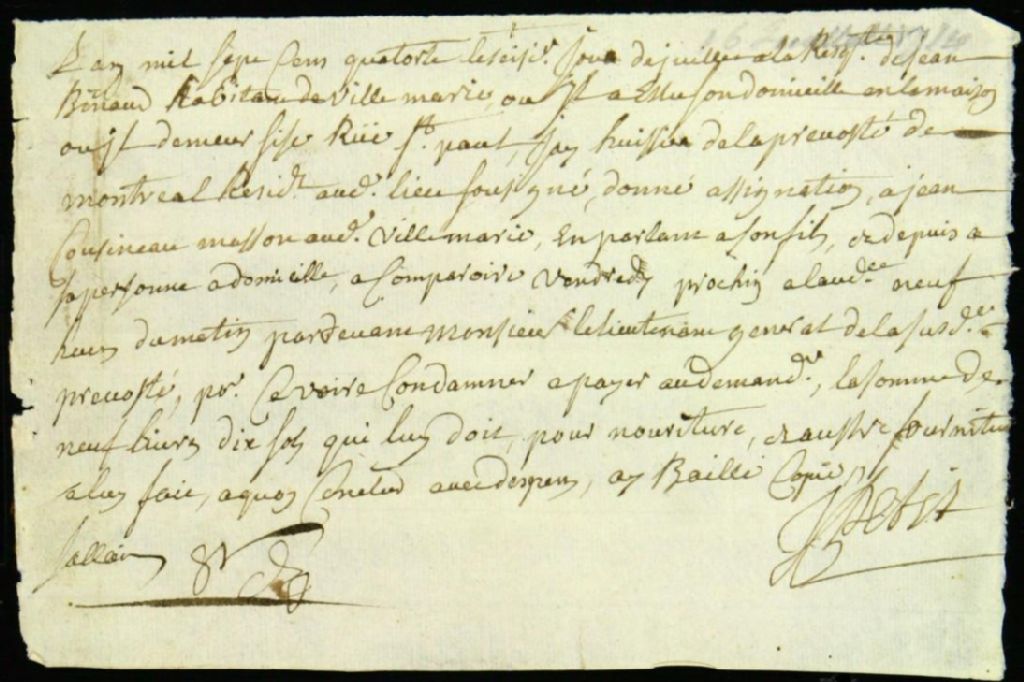 L'an mil sept Cens quatorze le seisie. Jour de juillet a la Reqte. de Jean
habitant de Ville marie, ou Jl a Eslu son domicille en la maison
ou Jl demeur sise Rüe St. paul, Jay huissier de la prevosté de
montreal Residt. aud. lieu soubsigné, donné assignation, a jean
Cousineau masson aud. Ville marie, En parlant a son fils, et depuis a
sa personne a domicille, a Comparoire Vendredy prochin a laudce. neuf
heures du matin pardevant Monsieur le lieutenant general de la susde.
prevosté, pr. Ce voire Condamner a payer au demandr., la somme de
neuf livres dix sols qui luy doit, pour nouriture, et austre fournitur
a luy faie, a quoy Conclud avec despens, ay Baillé Copie
sallair